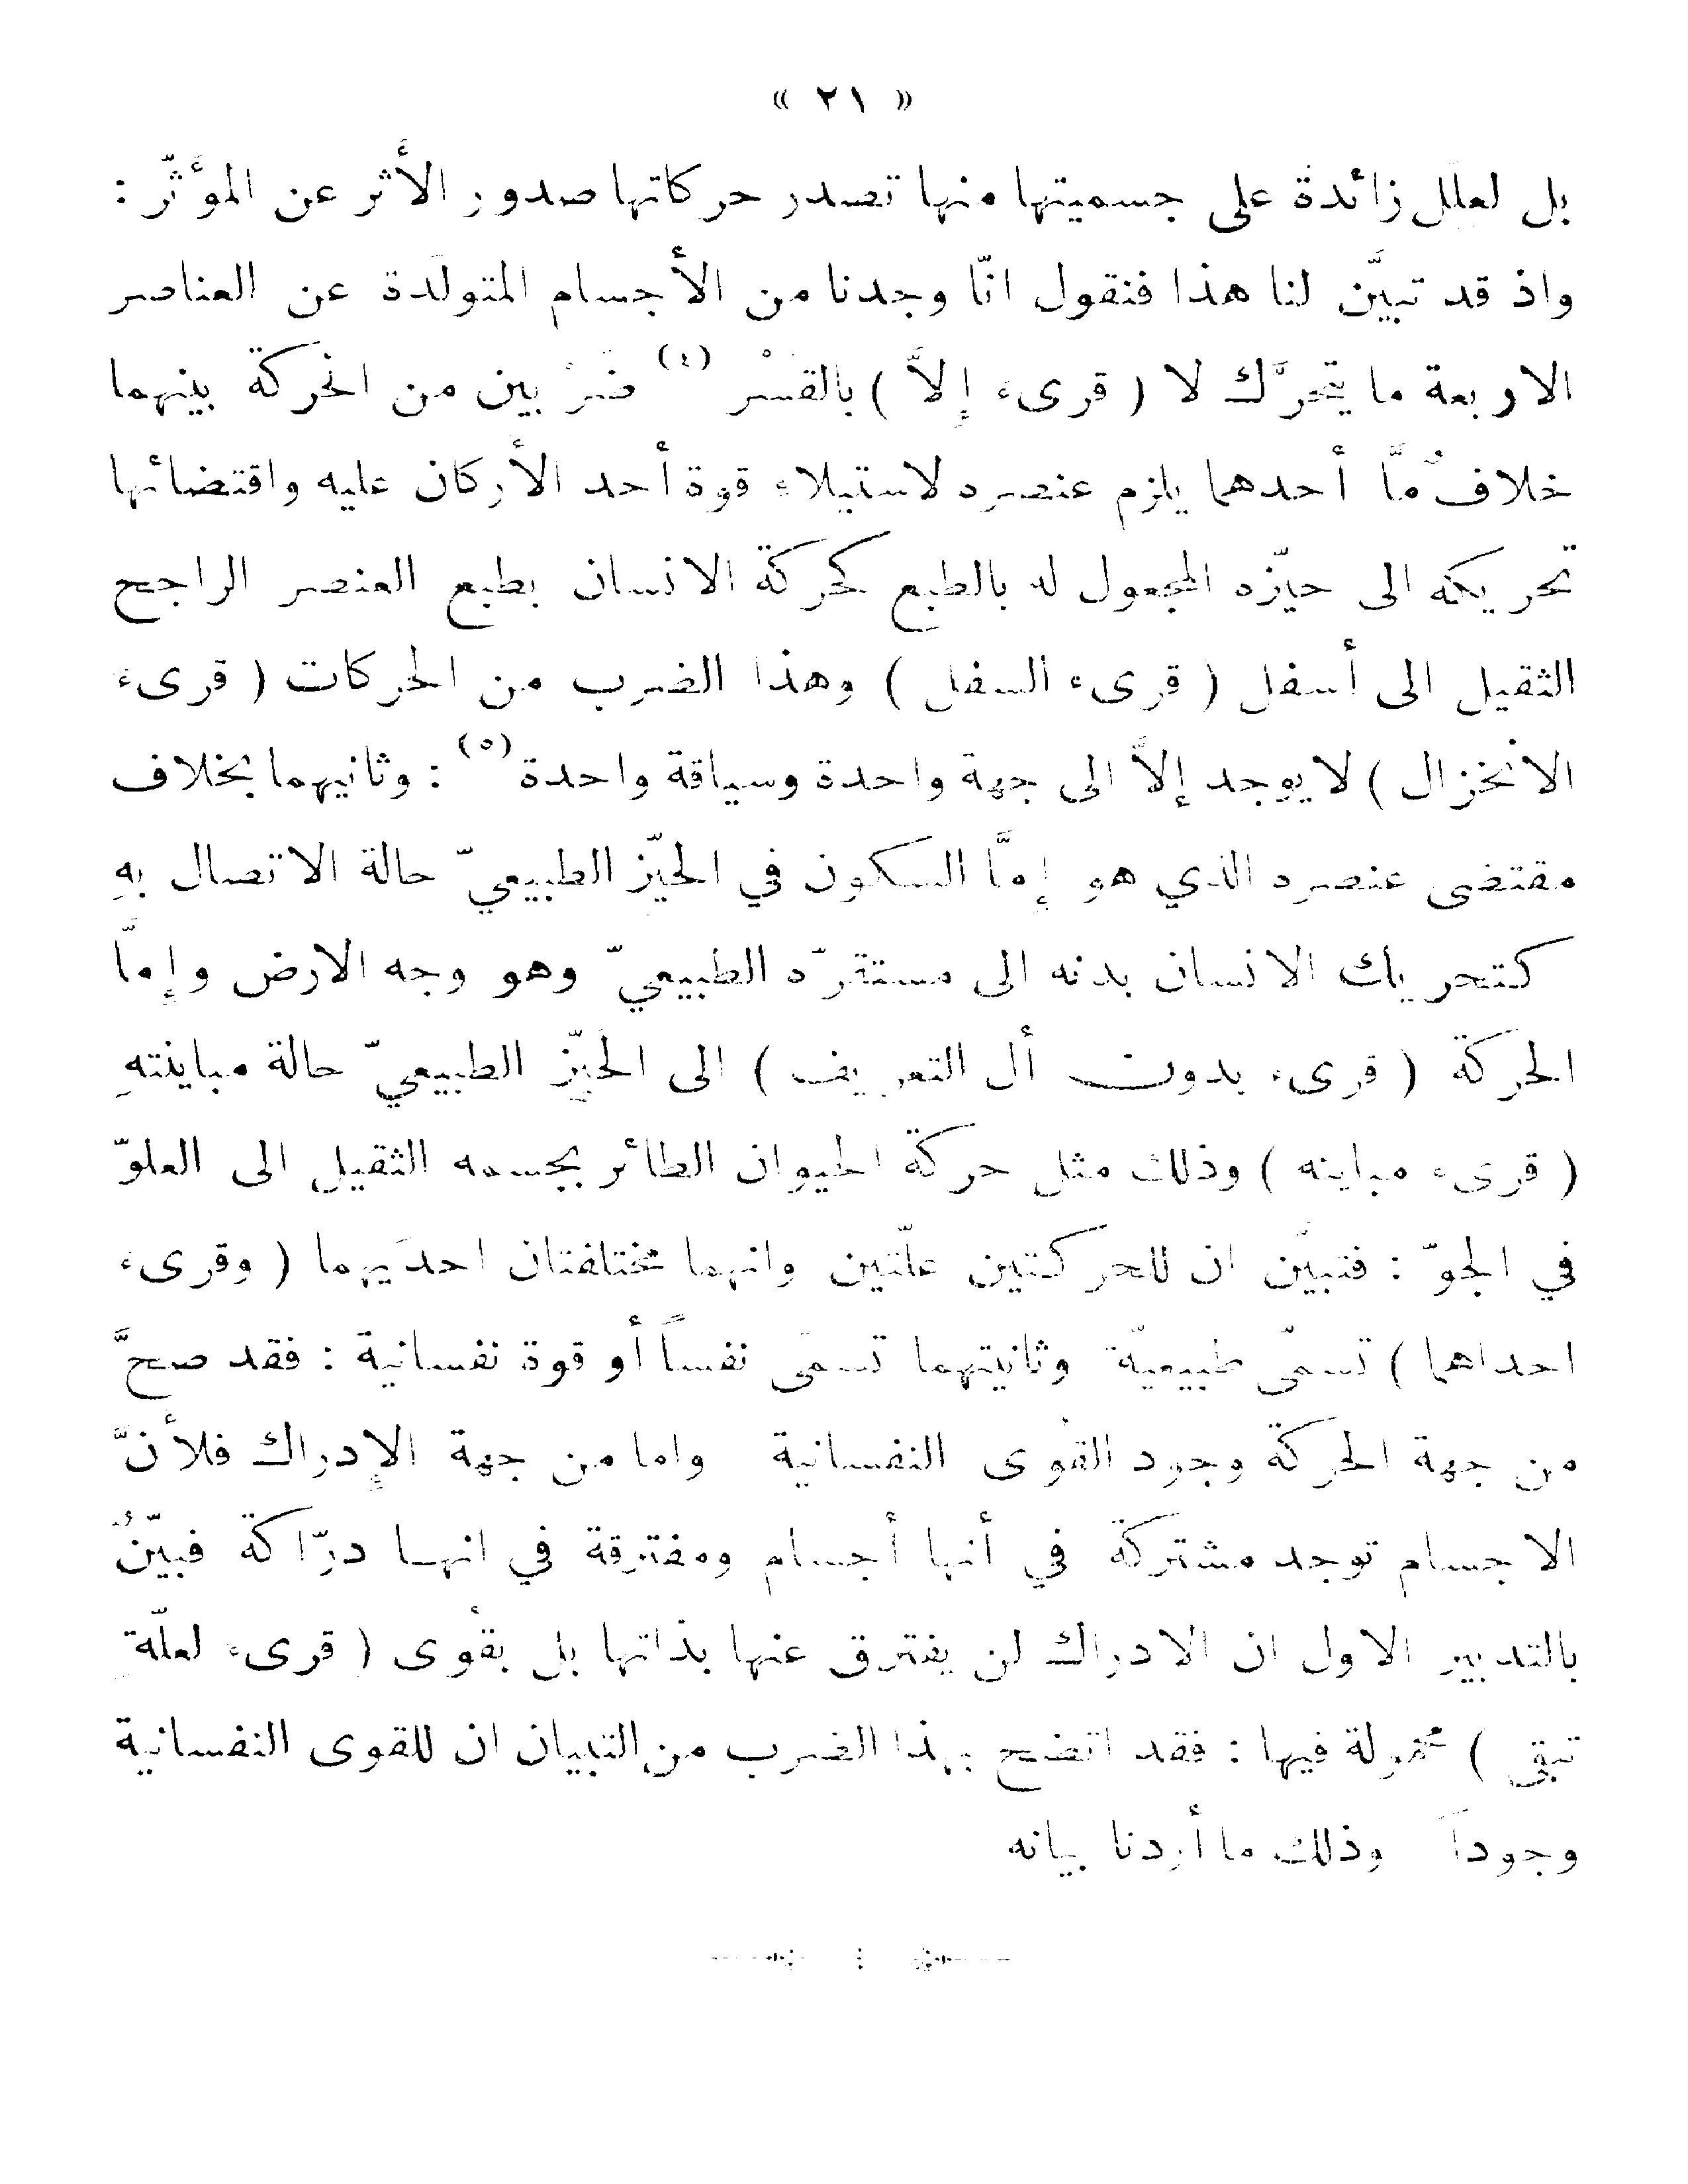 « ٢١ »
بل لعلل زائدة على جسميتها منها تصدر حركاتها صدور الأثر عن المؤثّر :
واذ قد تبيَّن لنا هذا فنقول انّا وجدنا من الأجسام المتولّدة عن العناصر
الاربعة ما يتحرَّك لا ( قرىء إلاَّ ) بالقسْر (٤) ضرْبين من الحركة بينهما
خلافٌ مَّا أحدهما يلزم عنصره لاستيلاء قوة أحد الأركان عليه واقتضائها
تحريكه الى حيّزه المجعول له بالطبع كحركة الانسان بطبع العنصر الراجح
الثقيل الى أسفل ( قرىء السفل ) وهذا الضرب من الحركات ( قرىء
الانخزال ) لا يوجد إلاَّ الى جهة واحدة وسياقة واحدة (٥) : وثانيهما بخلاف
مقتضى عنصره الذي هو إمَّا السكون في الحيّز الطبيعيّ حالة الاتصال بهِ
كتحريك الانسان بدنه الى مستقرّه الطبيعيّ وهو وجه الارض وإمَّا
الحركة ( قرىء بدون أل التعريف ) الى الحيّز الطبيعيّ حالة مباينتهِ
( قرىء مباينه ) وذلك مثل حركة الحيوان الطائر بجسمه الثقيل الى العلوّ
في الجوّ : فتبيَّن ان للحركتين علّتين وانهما مختلفتان احدَيهما ( وقرىء
احداهما ) تسمّى طبيعيّة وثانيتهما تسمَّى نفساً أو قوة نفسانية : فقد صحَّ
من جهة الحركة وجود القوى النفسانية واما من جهة الإدراك فلأنَّ
الاجسام توجد مشتركة في أنها أجسام ومفترقة في انهـا درّاكة فبيّنٌ
بالتدبير الاول ان الادراك لن يفترق عنها بذاتها بل بقوى ( قرىء لعلّةِ
تبقى ) محمولة فيها : فقد اتضح بهذا الضرب من التبيان ان للقوى النفسانية
وجوداً وذلك ما أردنا بيانه